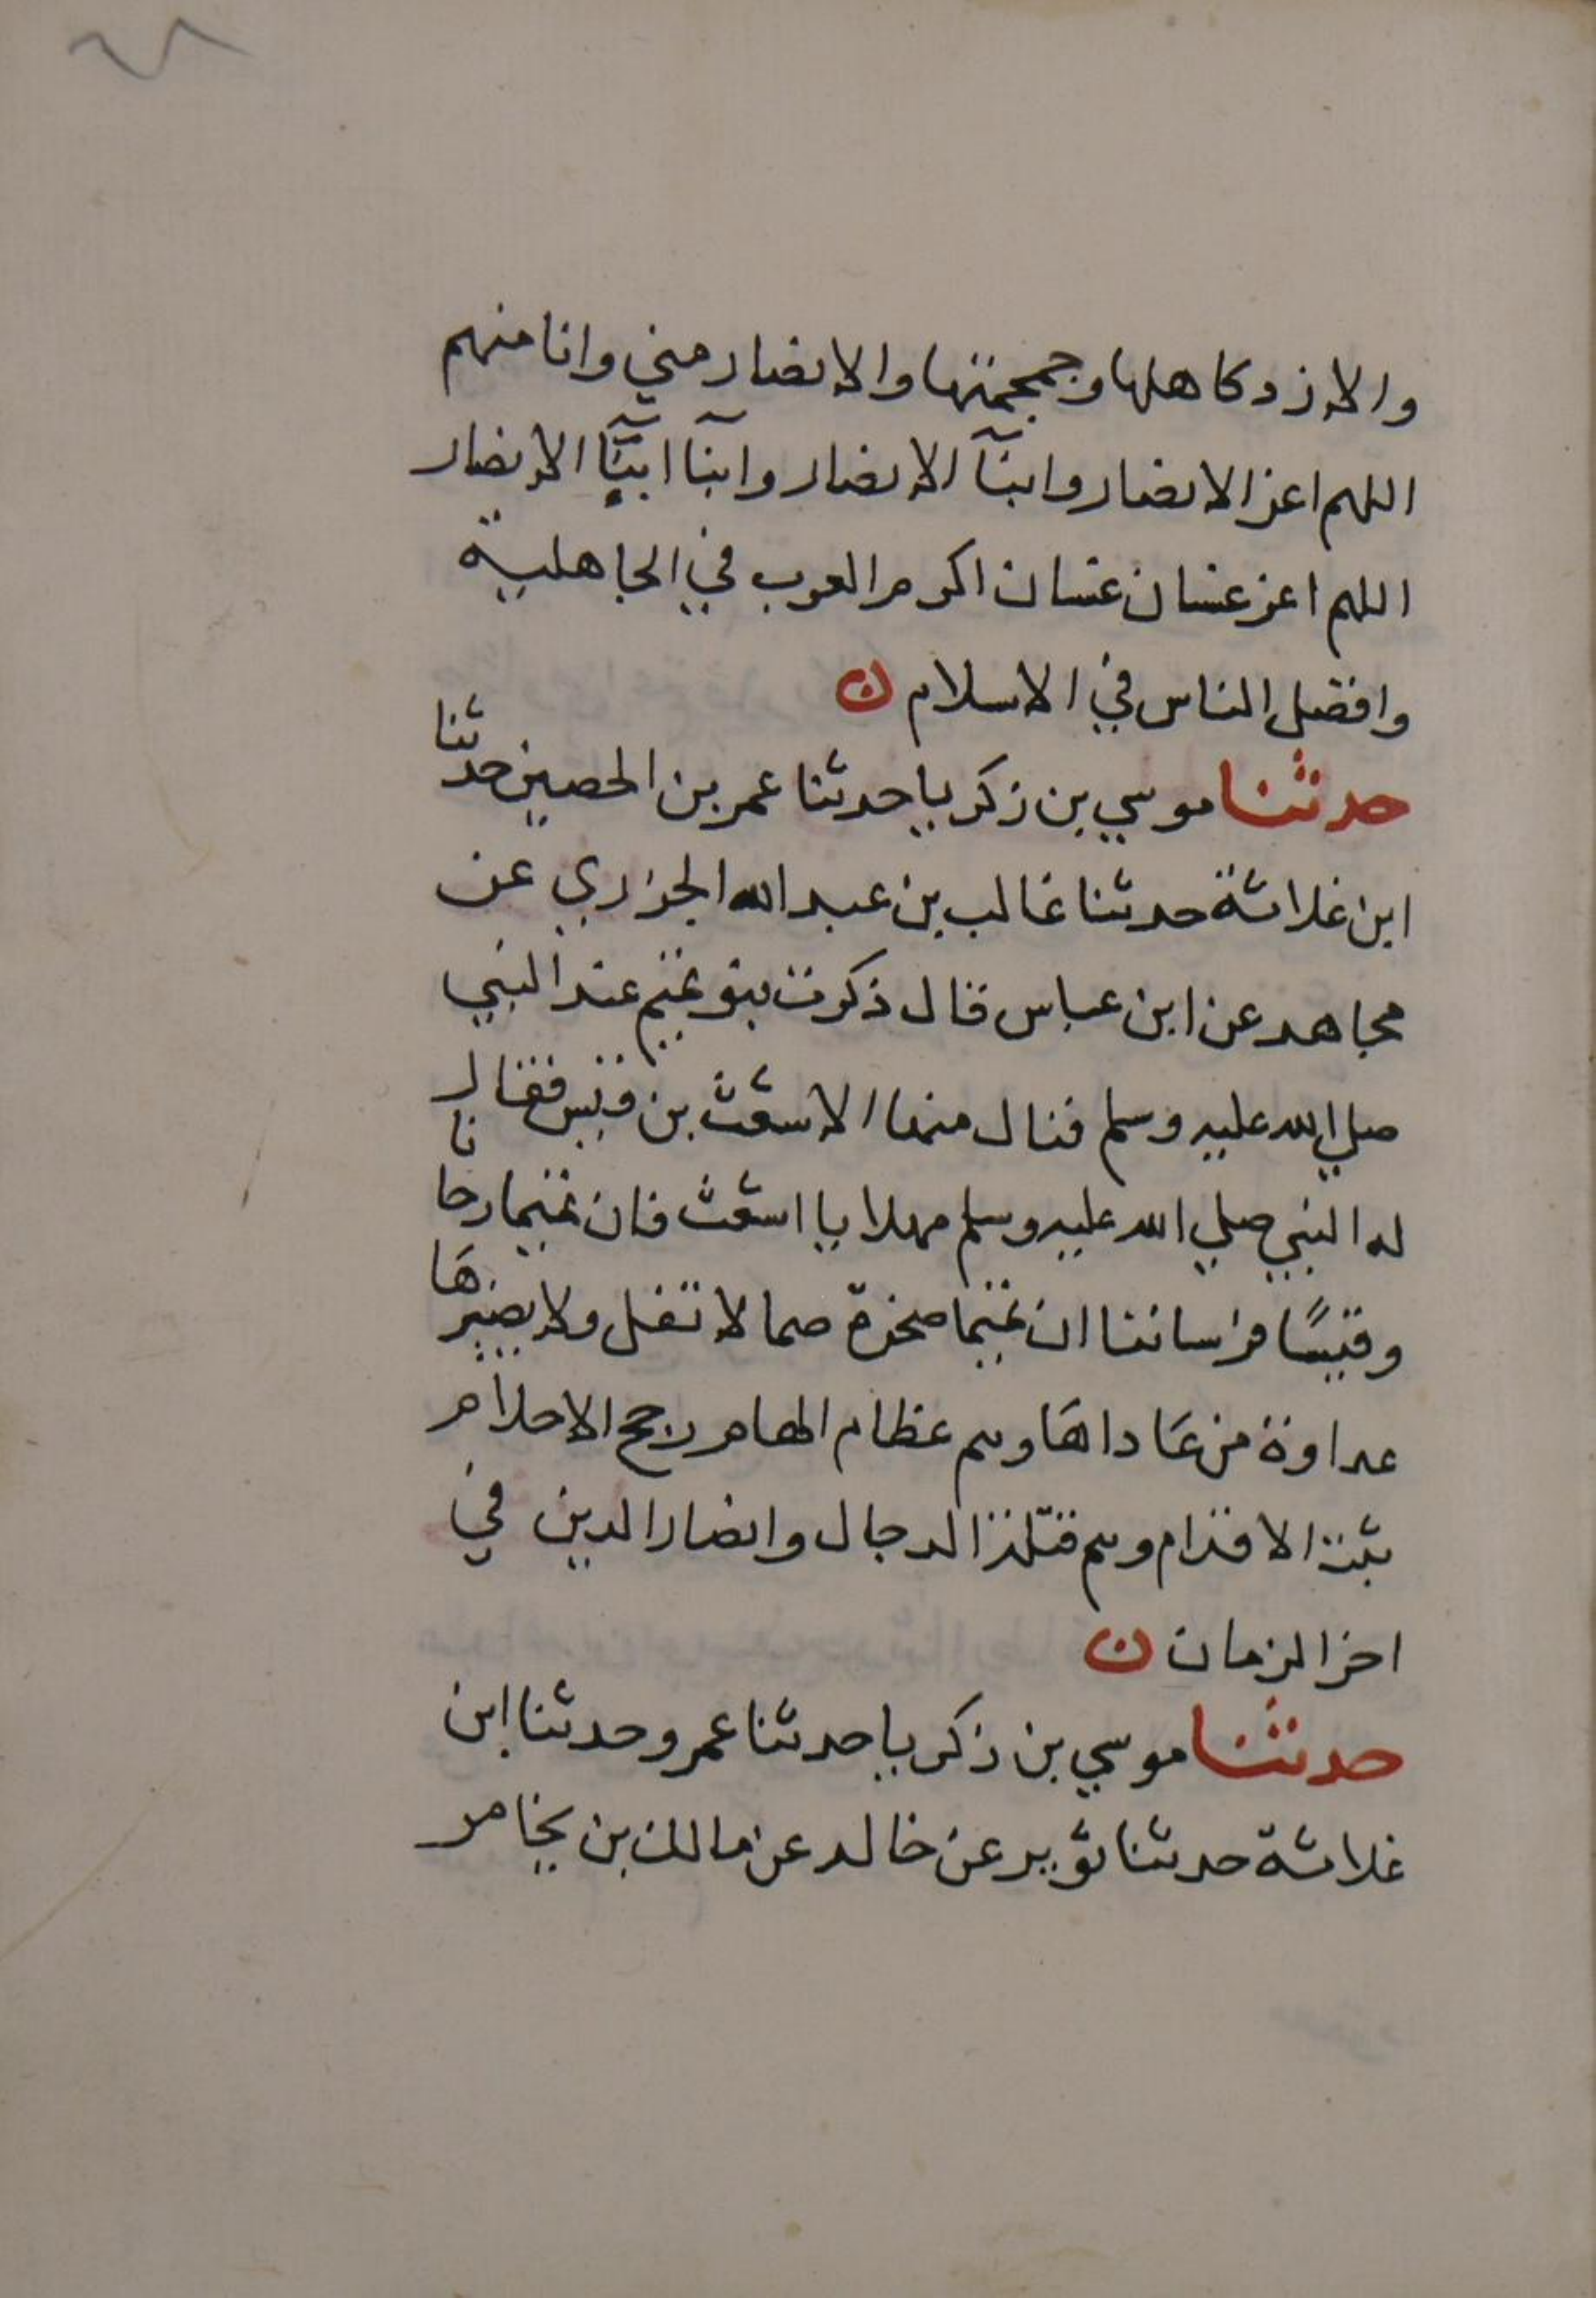 ٦٨
والازد كاهلها وجمجمتها والانصار مني وانا منهم
اللهم اعز الانصار وابنآ الانصار وابنآ ابنآ الانصار
اللهم اعز غسان غسان اكرم العرب في الجاهلية
وافضل الناس في الاسلام ن
حدثنا موسي بن زكريا حدثنا عمر بن الحصين حدثنا
ابن غلاثة حدثنا غالب بن عبد الله الجزري عن
مجاهد عن ابن عباس قال ذكرت بنو تميم عند النبي
صلي الله عليه وسلم فنال منها الاشعث بن قيس فقال
له النبي صلي الله عليه وسلم مهلا يا اشعث فان تميما رحانا
وقيسًا فرساننا ان تميما صخرة صما لا تفل ولا يضيرها
عداوة من عاداها وهم عظام الهام رجح الاحلام
ثبت الاقدام وهم قتلة الدجال وانصار الدين في
اخر الزمان ن
حدثنا موسي بن زكريا حدثنا عمرو حدثنا ابن
غلاثة حدثنا ثوير عن خالد عن مالك بن يخامر